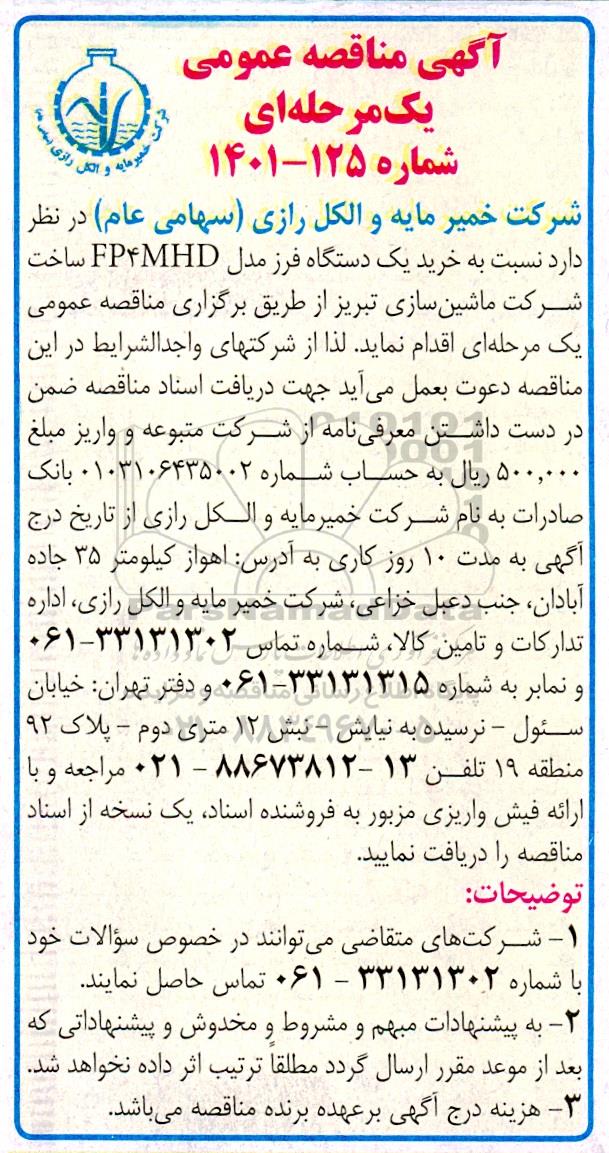 آگهی مناقصه عمومی
یک‌مرحله‌ای
شماره ۱۲۵-۱۴۰۱
شرکت خمیرمایه و الکل رازی (سهامی عام)
شرکت خمیر مایه و الکل رازی (سهامی عام) در نظر
دارد نسبت به خرید یک دستگاه فرز مدل FP۴MHD ساخت
شرکت ماشین‌سازی تبریز از طریق برگزاری مناقصه عمومی
یک مرحله‌ای اقدام نماید. لذا از شرکتهای واجدالشرایط در این
مناقصه دعوت بعمل می‌آید جهت دریافت اسناد مناقصه ضمن
در دست داشتن معرفی‌نامه از شرکت متبوعه و واریز مبلغ
۵۰۰,۰۰۰ ریال به حساب شماره ۰۱۰۳۱۰۶۴۳۵۰۰۲ بانک
صادرات به نام شرکت خمیرمایه و الکل رازی از تاریخ درج
آگهی به مدت ۱۰ روز کاری به آدرس: اهواز کیلومتر ۳۵ جاده
آبادان، جنب دعبل خزاعی، شرکت خمیر مایه و الکل رازی، اداره
تدارکات و تامین کالا، شماره تماس ۳۳۱۳۱۳۰۲-۰۶۱
و نمابر به شماره ۳۳۱۳۱۳۱۵-۰۶۱ و دفتر تهران: خیابان
سئول - نرسیده به نیایش - نبش ۱۲ متری دوم - پلاک ۹۲
منطقه ۱۹ تلفن ۱۳ -۸۸۶۷۳۸۱۲ - ۰۲۱ مراجعه و با
ارائه فیش واریزی مزبور به فروشنده اسناد، یک نسخه از اسناد
مناقصه را دریافت نمایید.
توضیحات:
۱- شرکت‌های متقاضی می‌توانند در خصوص سؤالات خود
با شماره ۳۳۱۳۱۳۰۲ - ۰۶۱ تماس حاصل نمایند.
۲- به پیشنهادات مبهم و مشروط و مخدوش و پیشنهاداتی که
بعد از موعد مقرر ارسال گردد مطلقاً ترتیب اثر داده نخواهد شد.
۳- هزینه درج آگهی برعهده برنده مناقصه می‌باشد.
ParsNamadData
پایگاه اطلاع رسانی مناقصه و مزایده